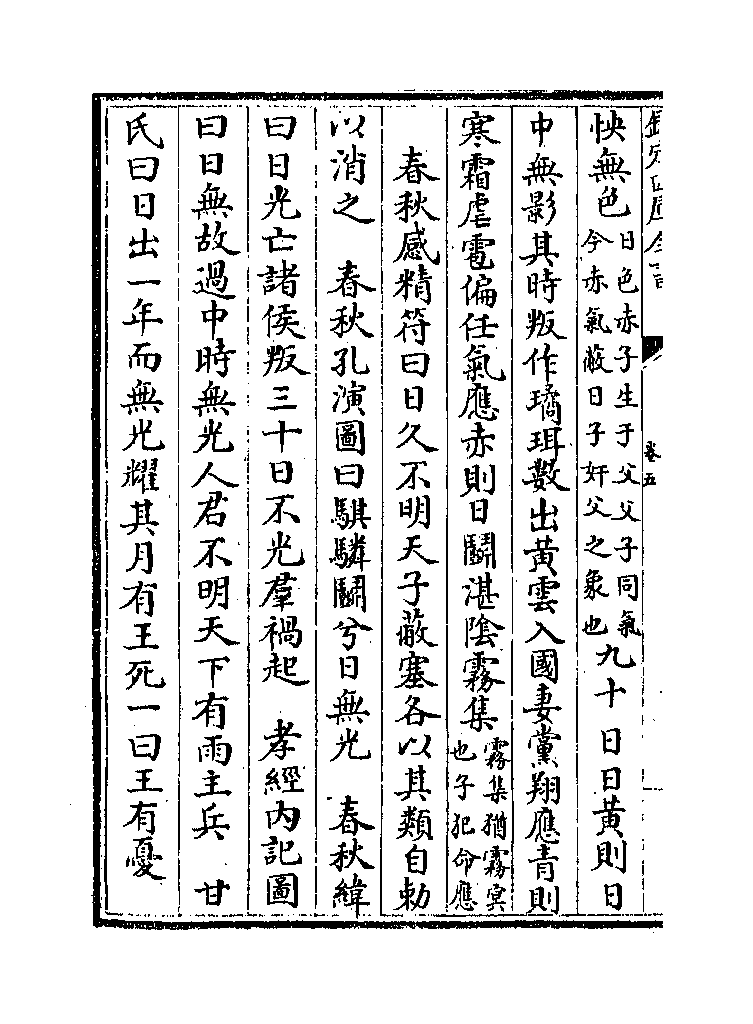 怏無色日色赤子生于父父子同氣今赤氣蔽日子奸父之象也九十日日黄則日
中無影其時叛作璚珥數出黄雲入國妻黨翔應青則
寒霜虐雹偏任氣應赤則日鬬湛隂霧集霧集猶霧冥也子犯命應
春秋感精符曰日久不明天子蔽塞各以其類自勅
以消之　春秋孔演圖曰騏驎鬬兮日無光　春秋緯
曰日光亡諸侯叛三十日不光羣禍起　孝經内記圖
曰日無故過中時無光人君不明天下有兩主兵　甘
氏曰日出一年而無光耀其月有王死一曰王有憂
卷五